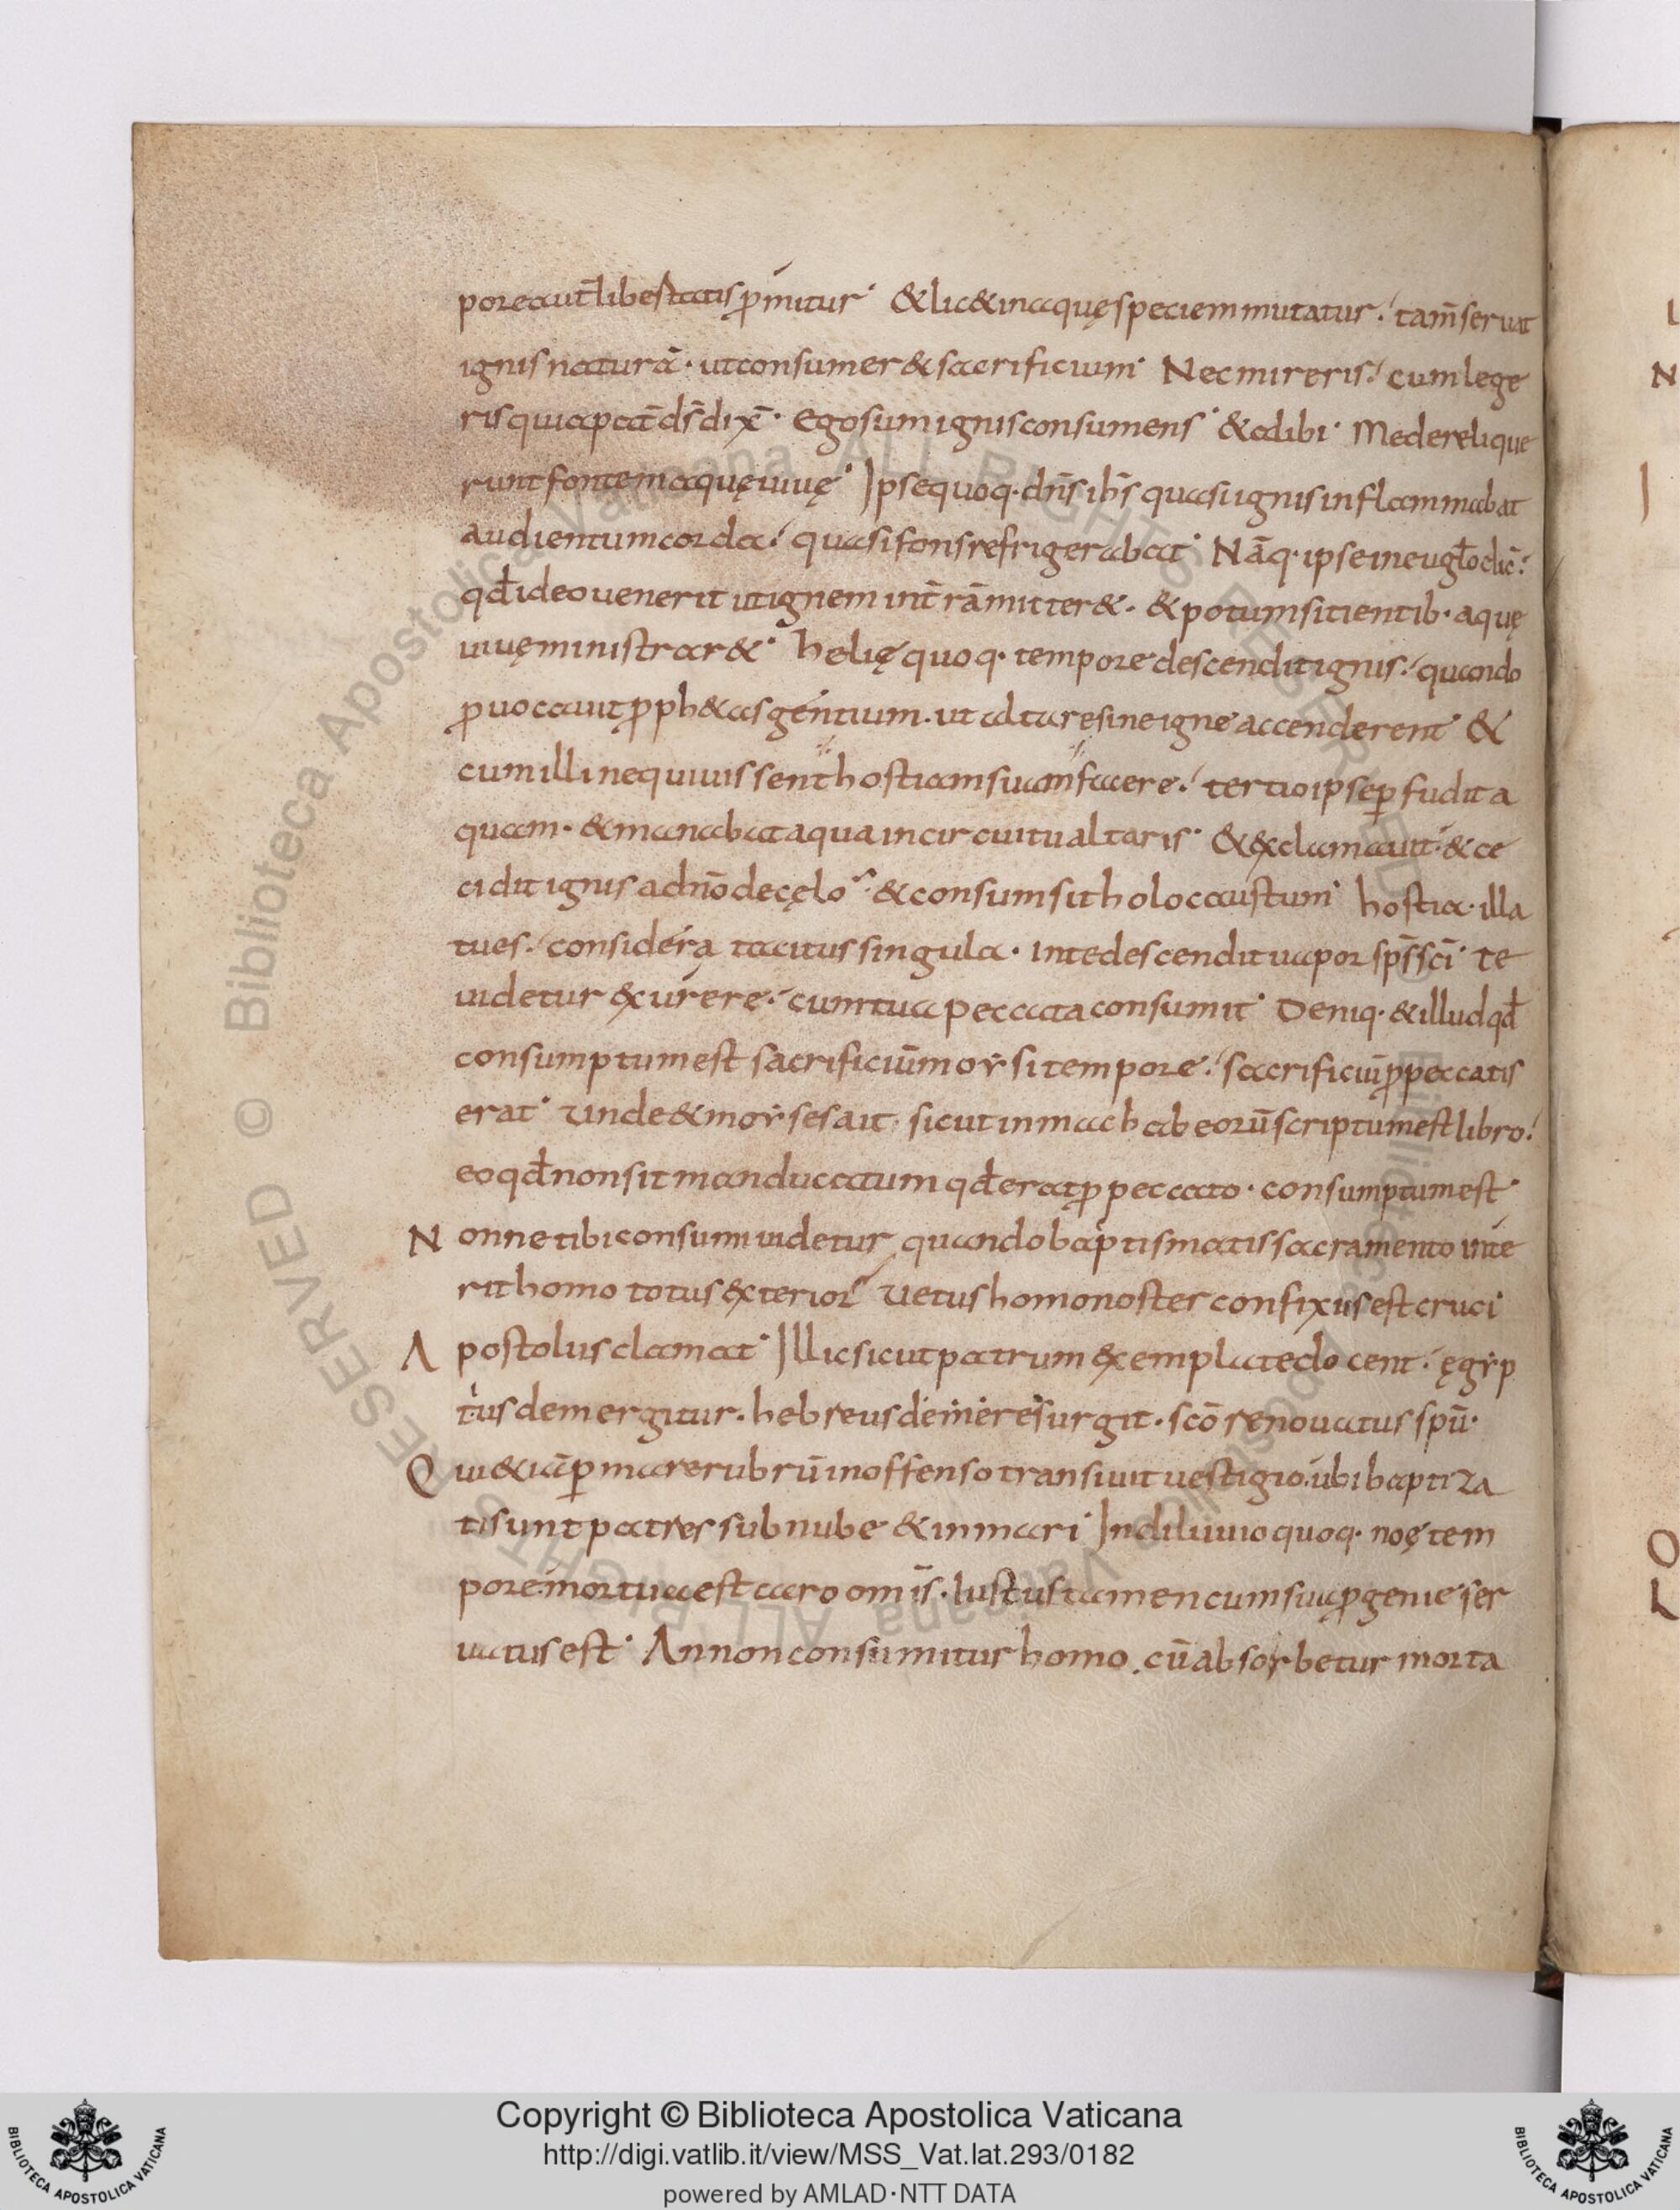 pore aut̄ libertatis p̄mitur· & lic& in aquę speciem mutatur· tam̄ seruat
ignis naturā· ut consumer& sacrificium· Nec mireris· cum lege
ris quia pat̄ ds̄ dix̄· Ego sum ignis consumens· & alibi· Me derelique
runt fontem aquę uiuę· Ipse quoq· dn̄s ih̄s quasi ignis inflammabat
audientum corda· quasi fons refrigerabat· Nāq· ipse in eugl̄o dic̄·
qd̄ ideo uenerit ut ignem in t̄rā mitter&· & potum sitientib· aquę
uiuę ministrar&· helię quoq· tempore descendit ignis· quando
ꝓuocauit ꝓph&as gentium· ut altare sine igne accenderent· &
cum illi nequiuissent hostiam suam facere· tertio ipse ꝑfudit a
quam· & manabat aqua in circuitu altaris· & exclamauit· & ce
cidit ignis a dn̄o de cęlo· & consumsit holocaustum· hostia· illa
tu es· considera tacitus singula· In te descendit uapor sps̄ sc̄i· te
uidetur exurere· cum tua peccata consumit· Deniq· & illud qd̄
consumptum est sacrificiūm oẏsi tempore· sacrificiū ꝓ peccatis
erat· Unde & moẏses ait· sicut in machabeorū scriptum est libro·
eo qd̄ non sit manducatum qd̄ erat ꝓ peccato· consumptum est·
Nonne tibi consumi uidetur quando baptismatis sacramento inte
rit homo totus exterior· Uetus homo noster confixus est cruci
Apostolus clamat· Illic sicut patrum exempla te docent· ęgẏp
tius demergitur· hebreus demere surgit· sc̄o renouatus spū·
Qui & iā ꝑ mare rubrū inoffenso transiuit uestigio· ubi baptiza
ti sunt patres sub nube & in mari· In diluuio quoq· noę tem
pore· mortua est caro om̄is· Iustus tamen cum sua ꝓgenie ser
uatus est· An non consumitur homo· cū absorbetur morta
Copyright © Biblioteca Apostolica Vaticana
http://digi.vatlib.it/view/MSS_Vat.lat.293/0182
powered by AMLAD·NTT DATA